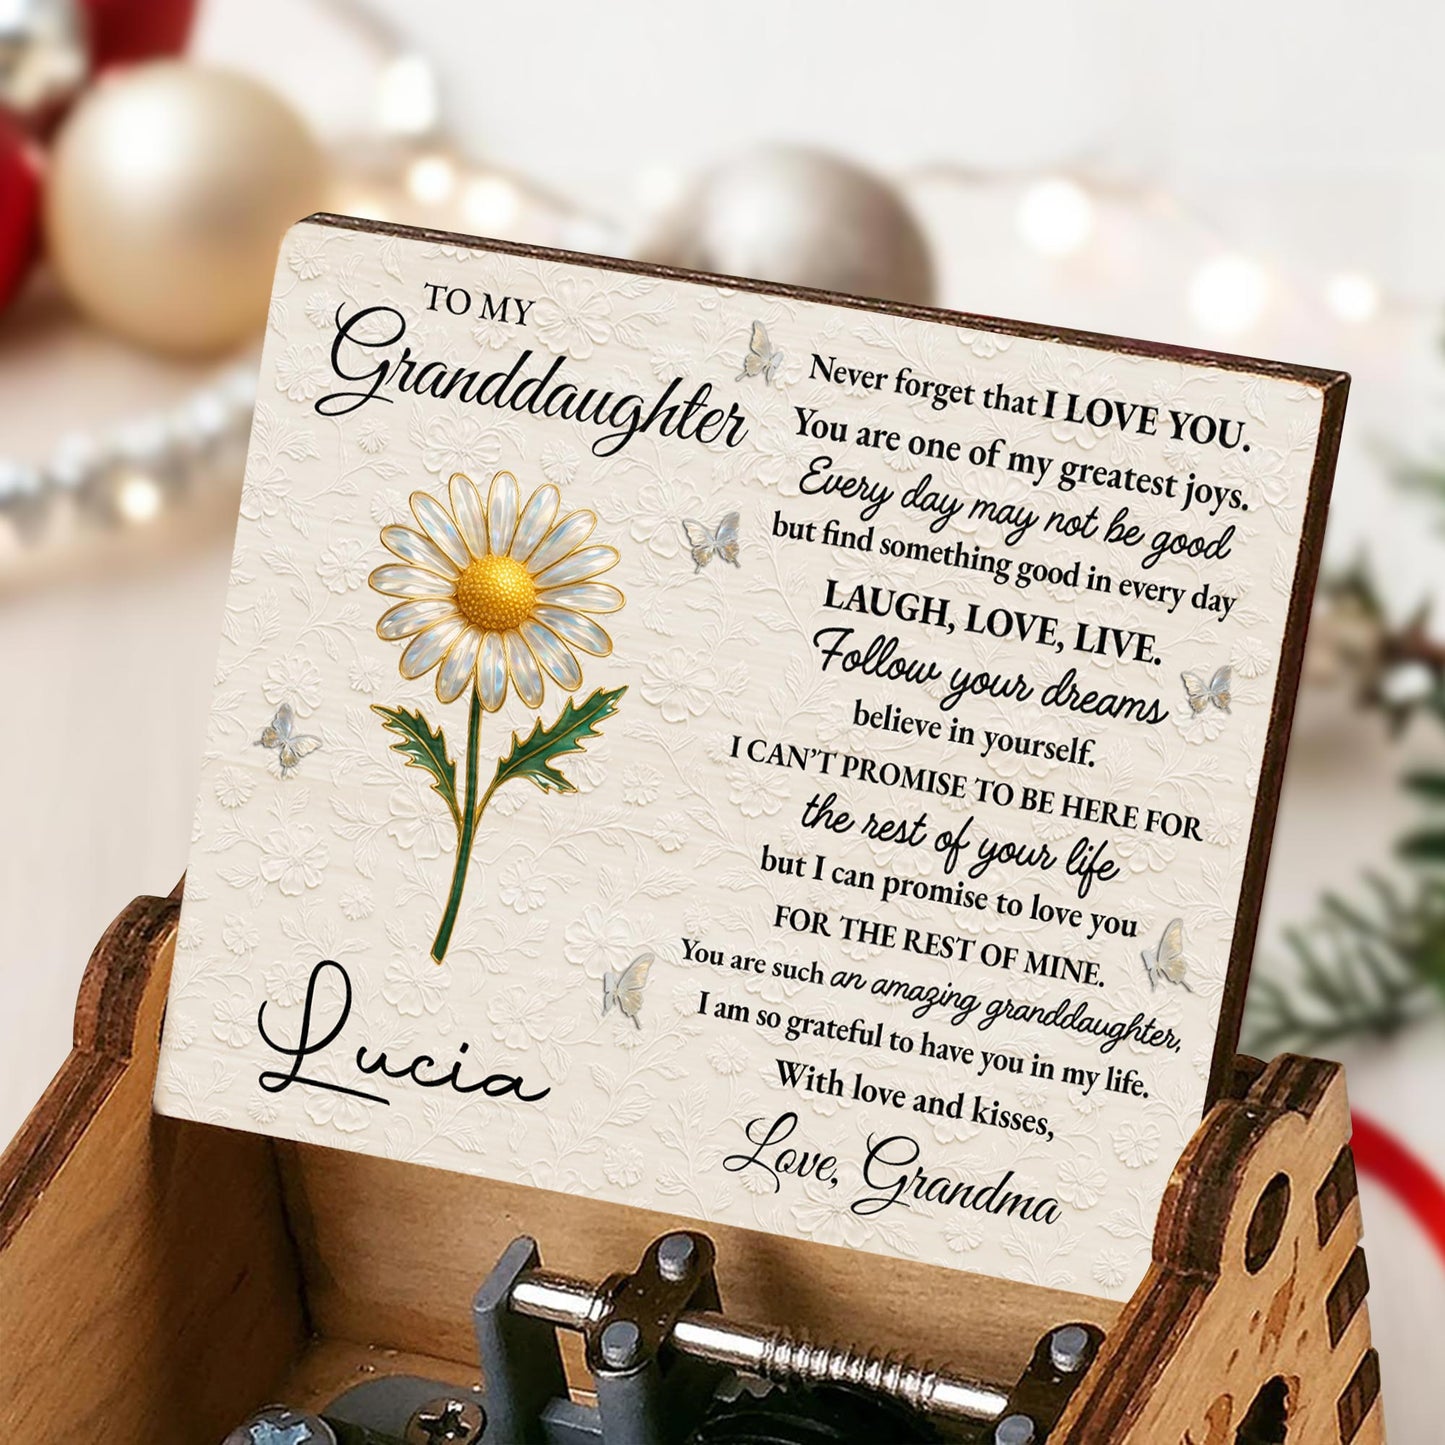 TO MY
Granddaughter
Lucia
Never forget that I LOVE YOU.
You are one of my greatest joys.
Every day may not be good
but find something good in every day
LAUGH, LOVE, LIVE.
Follow your dreams
believe in yourself.
I CAN'T PROMISE TO BE HERE FOR
the rest of your life
but I can promise to love you
FOR THE REST OF MINE.
You are such an amazing granddaughter,
I am so grateful to have you in my life.
With love and kisses,
Love, Grandma